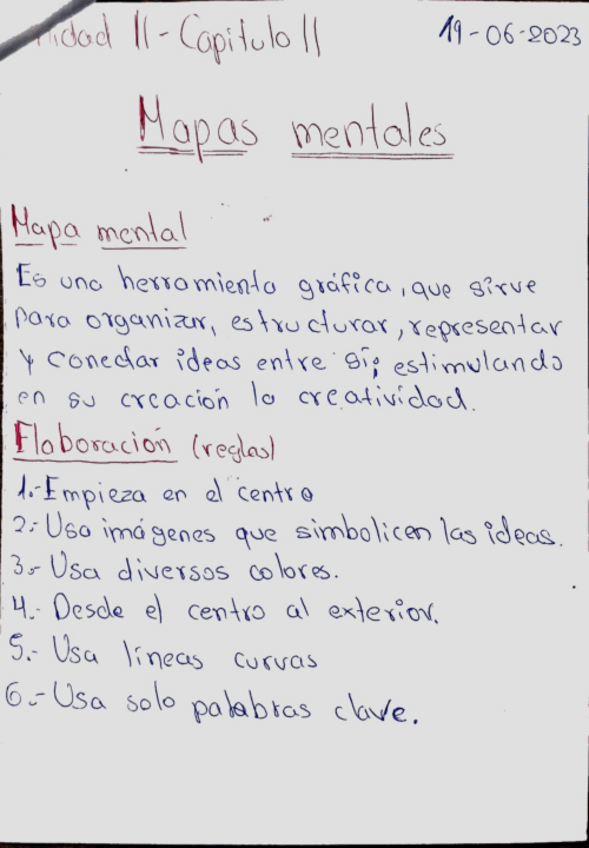 Unidad II - Capitulo II
19-06-2023
Mapas mentales
Mapa mental
Es una herramienta gráfica, que sirve
para organizar, estructurar, representar
y conectar ideas entre sí; estimulando
en su creación la creatividad.
Elaboración (reglas)
1.- Empieza en el centro
2.- Usa imágenes que simbolicen las ideas.
3.- Usa diversos colores.
4.- Desde el centro al exterior.
5.- Usa líneas curvas
6.- Usa solo palabras clave.